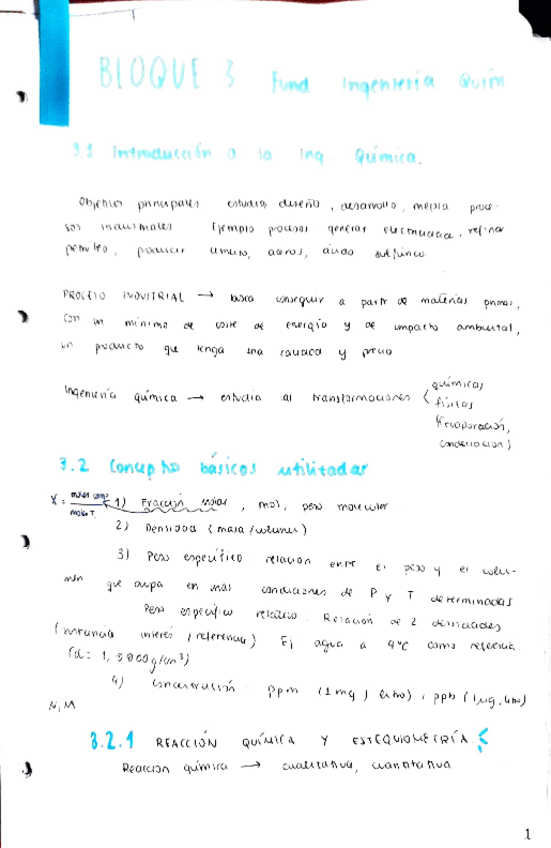 BLOQUE 3 Fund Ingeniería Quím
3.1 Introducción a la Ing. Química.
Objetivos principales estudia, diseño, desarrollo, mejora proce-
sos industriales Ejemplo procesos generar electricidad, refinar
petróleo, producir aceros, ácido sulfúrico
PROCESO INDUSTRIAL → busca conseguir a partir de materias primas,
con un mínimo de coste de energía y de impacto ambiental,
un producto que tenga una calidad y precio
Ingeniería química → estudia las transformaciones { químicas,
físicas
(evaporación,
condensación)
3.2 Concepto básicos utilizados
X = moles comp / moles T 1) Fracción molar, mol, peso molecular
2) Densidad (masa/volumen)
3) Peso específico relación entre el peso y el volu-
men que ocupa en unas condiciones de P y T determinadas
Peso específico relativo. Relación de 2 densidades
(sustancia interés / referencia) Ej agua a 4ºC como referencia
4) Concentración ppm (1mg / litro), ppb (1µg, litro)
N, M
3.2.1 REACCIÓN QUÍMICA Y ESTEQUIOMETRÍA
Reacción química → cualitativa, cuantitativa
1